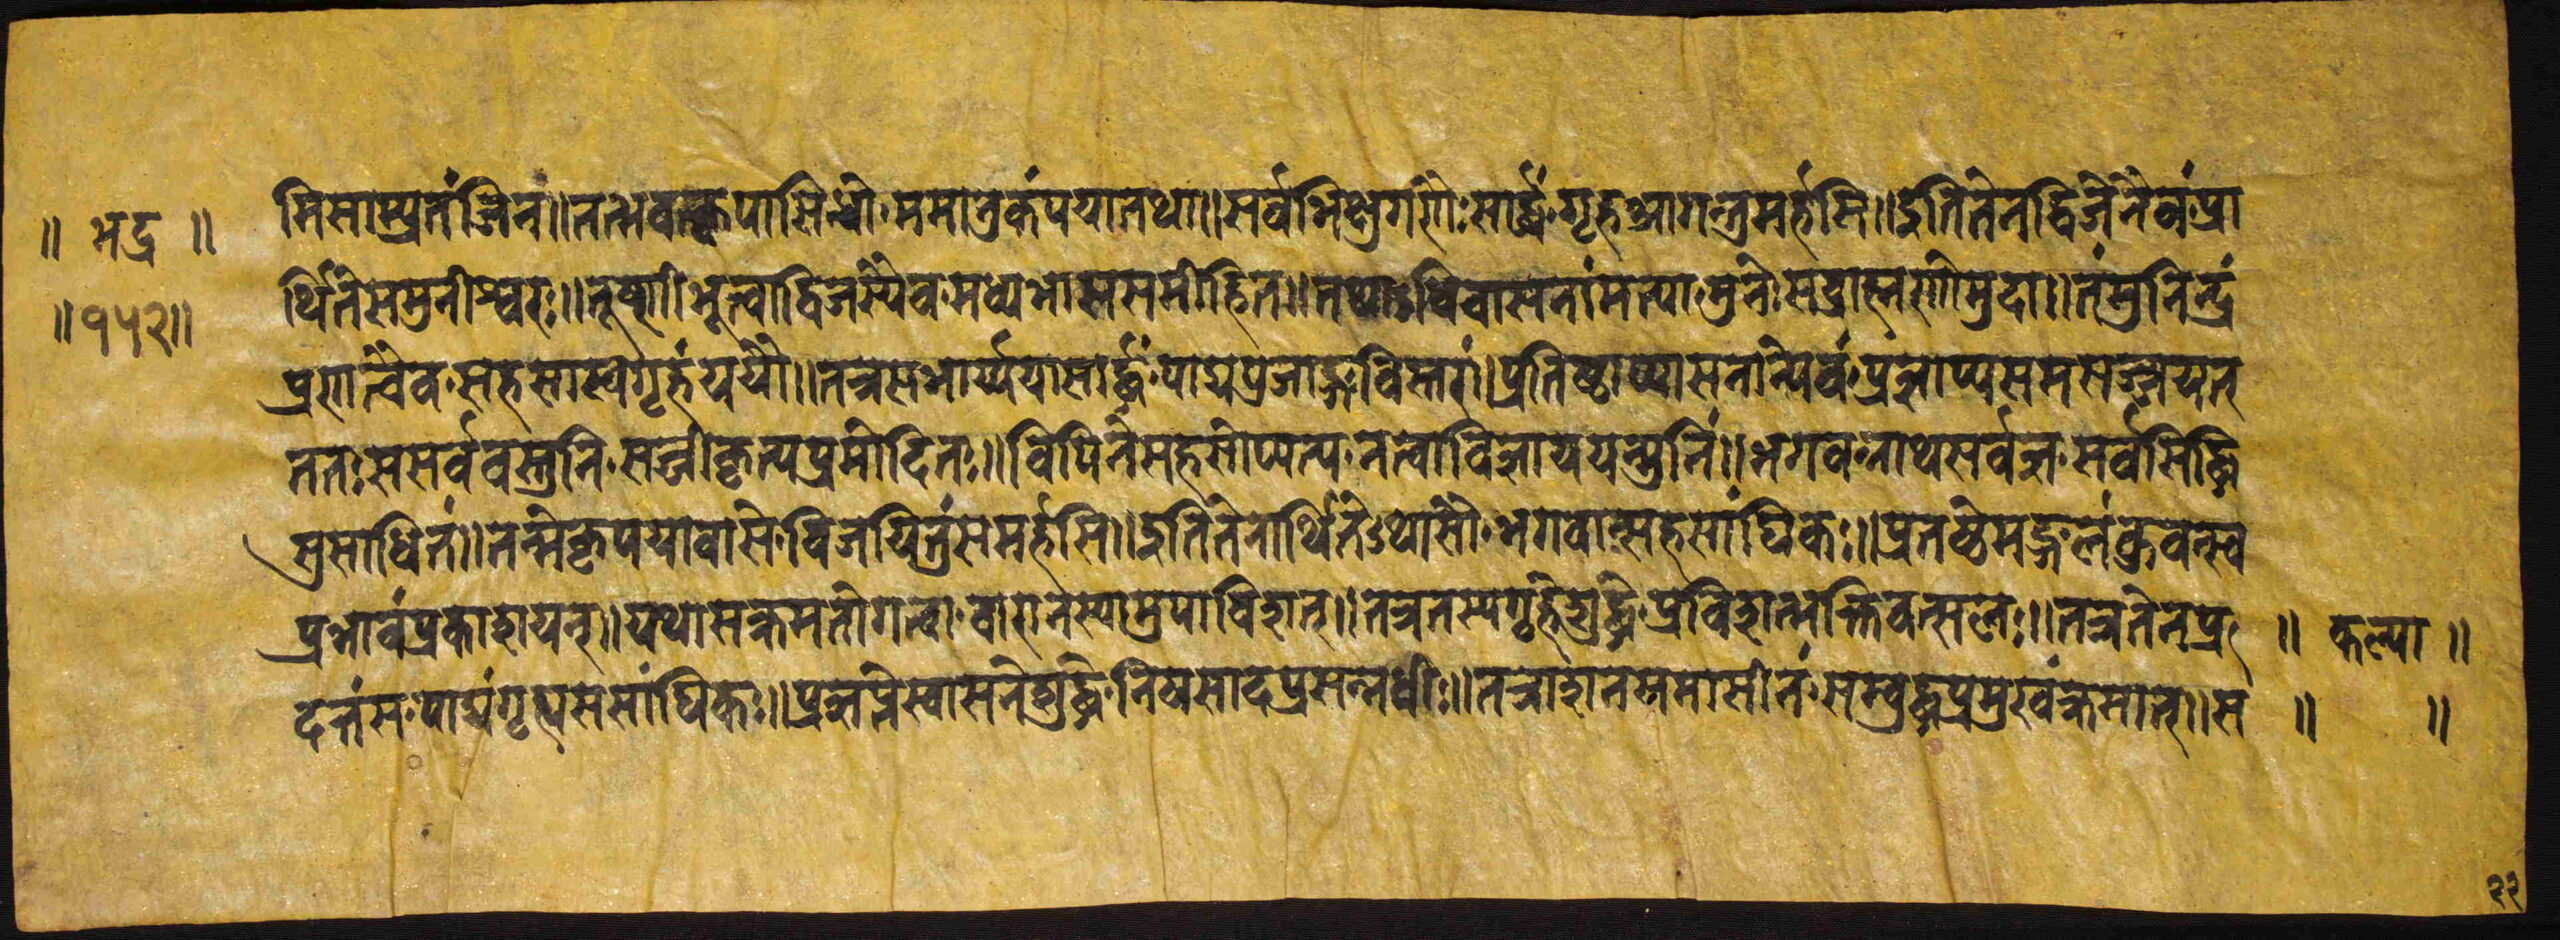 ॥ भद्र ॥
॥१५२॥
मिसाम्प्रतंजिन॥तद्भवत्कृपासिन्धो·ममानुकंपयातथा॥सर्वभिक्षुगणैःसार्द्धं·गृहआगन्तुमर्हसि॥इतितेनद्विजेनैवं·प्रा
र्थितेसमुनीश्वरः॥तूष्णीभूत्वाद्विजस्यैव·मध्यभाससमीहित॥तथाऽधिवासनांमत्वा·मुनेःसब्राह्मणोमुदा॥तंमुनिन्द्रं
प्रणत्वैव·सहसास्वगृहंययौ॥तत्रसभार्य्ययासार्द्धं·पाद्यप्रजाङ्गविस्तरां॥प्रतिष्ठाप्यासनान्येवं·प्रज्ञाप्यसमसज्जयत्
ततःससर्ववस्तुनि·सज्जीकृत्यप्रमोदितः॥विपिनेसहसोप्यत्य·नत्वाविज्ञाययन्मुनिं॥भगवन्नाथसर्वज्ञ·सर्वसिद्धि
प्रसाधितं॥तन्मेकृपयावासे·विजयितुंसमर्हसि॥इतितेनार्थितेऽथासौ·भगवान्सहसांघिकः॥प्रतष्ठेमङ्गलंक्रुवन्स्व
प्रभावंप्रकाशयन्॥यथासक्रमतोगत्वा·वासनस्यामुपाविशत्॥तत्रतस्यगृहेशुद्धे·प्रविशत्भक्तिवत्सलः॥तत्रतेनप्र
दत्तंस·पाद्यंगृह्यससांघिकः॥प्रज्ञप्तेस्वासनेशुद्धे·निषसादप्रसन्नधीः॥तत्राशनसमासीनं·सम्बुद्धप्रमुखंक्रमात्॥स
॥ कल्पा ॥
॥ ॥
२२